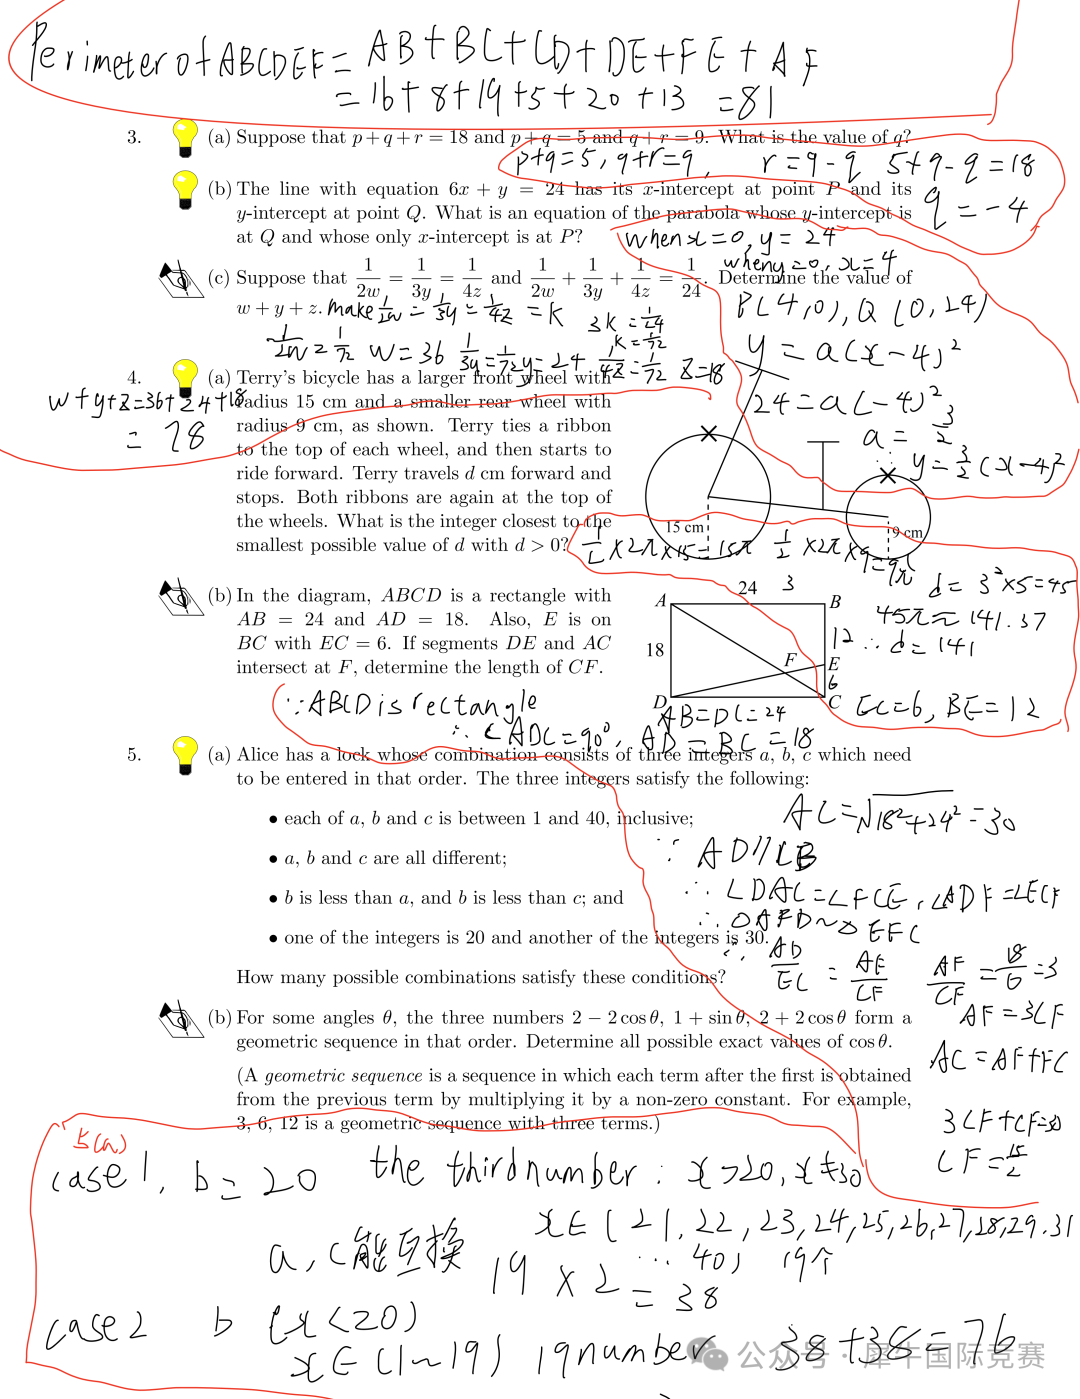 Perimeter of ABCDEF = AB+BC+CD+DE+FE+AF
= 16+8+19+5+20+13 =81
3. (a) Suppose that p + q + r = 18 and p + q = 5 and q + r = 9. What is the value of q?
p+q=5, q+r=9, r=9-q 5+9-q=18
q=-4
(b) The line with equation 6x + y = 24 has its x-intercept at point P and its
y-intercept at point Q. What is an equation of the parabola whose y-intercept is
at Q and whose only x-intercept is at P?
when x=0, y=24
when y=0, x=4
P(4,0), Q(0,24)
y=a(x-4)²
24=a(-4)²
a=3/2
∴ y=3/2(x-4)²
(c) Suppose that 1/2w = 1/3y = 1/4z and 1/2w + 1/3y + 1/4z = 1/24. Determine the value of
w + y + z.
make 1/2w = 1/3y = 1/4z = k
3k=1/24
k=1/72
1/2w=1/72 w=36 1/3y=1/72 y=24 1/4z=1/72 z=18
w+y+z=36+24+18
= 78
4. (a) Terry's bicycle has a larger front wheel with
radius 15 cm and a smaller rear wheel with
radius 9 cm, as shown. Terry ties a ribbon
to the top of each wheel, and then starts to
ride forward. Terry travels d cm forward and
stops. Both ribbons are again at the top of
the wheels. What is the integer closest to the
smallest possible value of d with d > 0?
15 cm
9 cm
1/2×2π×15=15π 1/2×2π×9=9π
d=3²×5=45
45π≈141.37
∴ d=141
(b) In the diagram, ABCD is a rectangle with
AB = 24 and AD = 18. Also, E is on
BC with EC = 6. If segments DE and AC
intersect at F, determine the length of CF.
24 3
A B
18 12
F E
6
D C
EC=6, BE=12
AB=DC=24
∵ABCD is rectangle
∴∠ADC=90°, AD=BC=18
AC=√18²+24²=30
∵ AD//CB
∴ ∠DAC=∠FCE, ∠ADF=∠ECF
∴ △AFD∽△EFC
∴ AD/EC = AF/CF AF/CF=18/6=3
AF=3CF
AC=AF+FC
3CF+CF=30
CF=15/2
5. (a) Alice has a lock whose combination consists of three integers a, b, c which need
to be entered in that order. The three integers satisfy the following:
• each of a, b and c is between 1 and 40, inclusive;
• a, b and c are all different;
• b is less than a, and b is less than c; and
• one of the integers is 20 and another of the integers is 30.
How many possible combinations satisfy these conditions?
(b) For some angles θ, the three numbers 2 − 2 cos θ, 1 + sin θ, 2 + 2 cos θ form a
geometric sequence in that order. Determine all possible exact values of cos θ.
(A geometric sequence is a sequence in which each term after the first is obtained
from the previous term by multiplying it by a non-zero constant. For example,
3, 6, 12 is a geometric sequence with three terms.)
5(a)
case 1, b=20 the third number: x>20, x≠30
x∈(21,22,23,24,25,26,27,28,29.31
… 40) 19个
a,c能互换 19×2
=38
case2 b (x<20)
x∈(1~19) 19number 38+38=76
公众号·犀牛国际竞赛